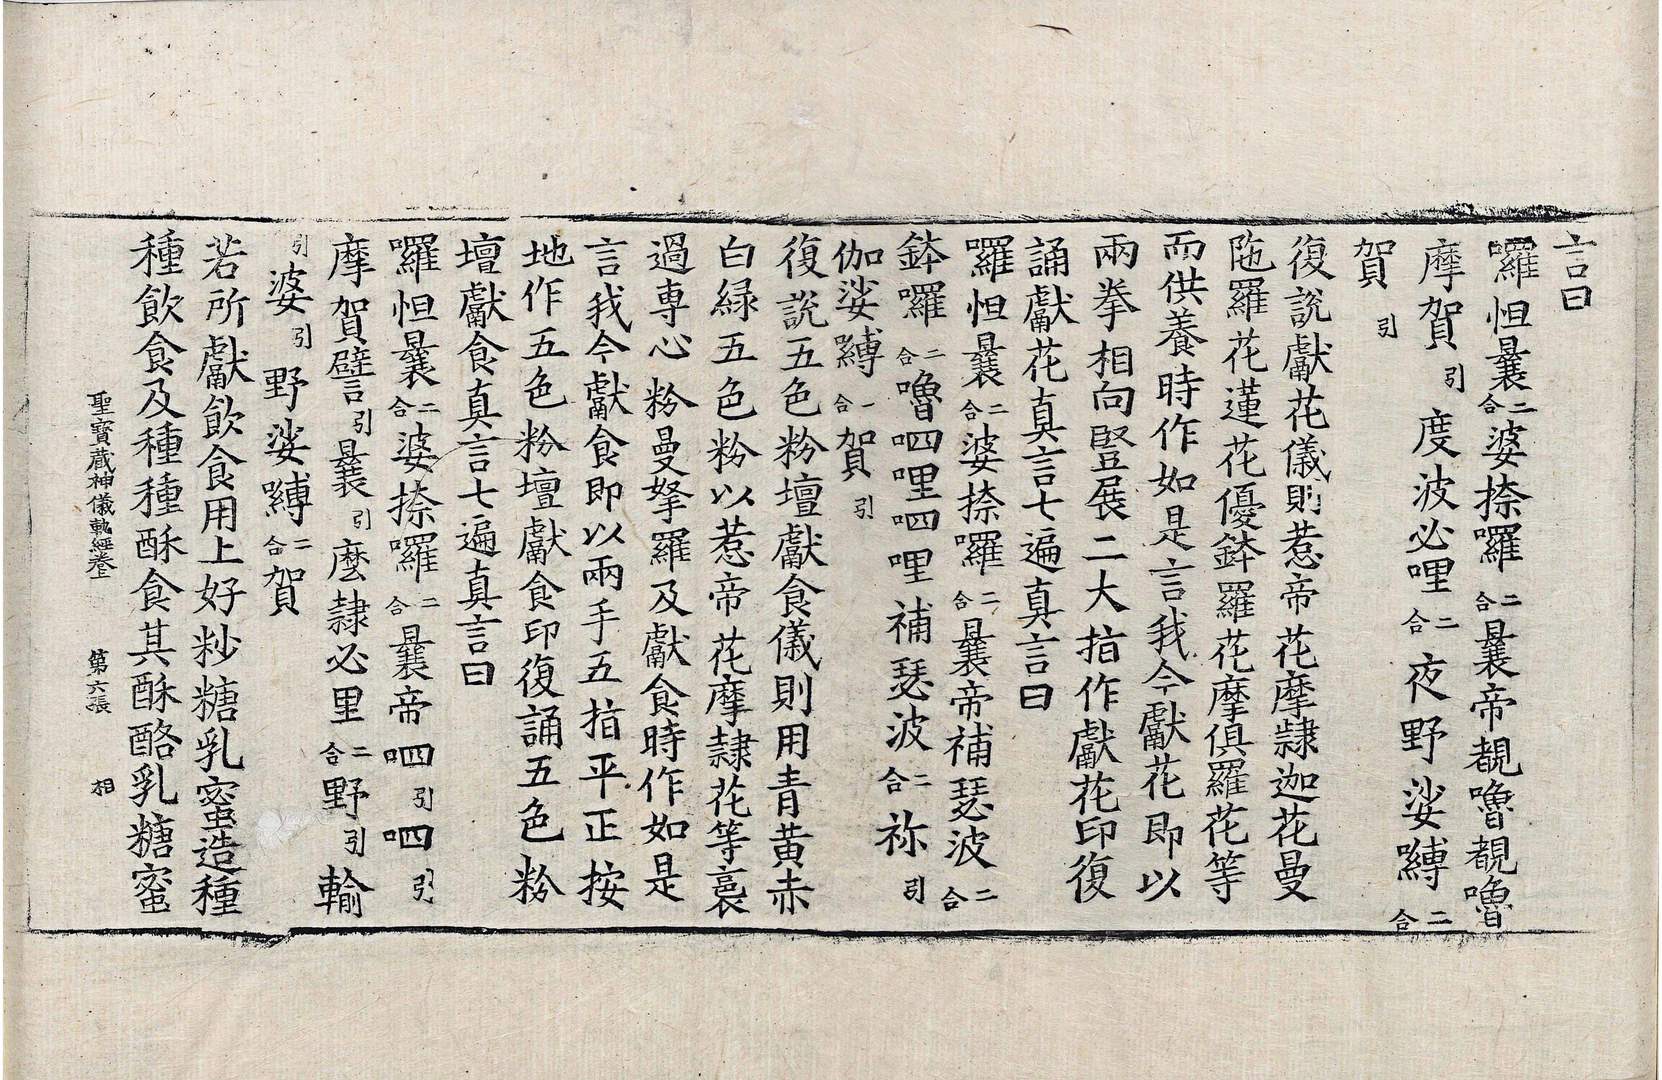 言曰
囉怛曩二合婆捺囉二合曩帝覩嚕覩嚕
摩賀引度波必哩二合夜野娑嚩二合
賀引
復說獻花儀則惹帝花摩隷迦花曼
陁羅花蓮花優鉢羅花摩俱羅花等
而供養時作如是言我今獻花即以
兩拳相向竪展二大指作獻花印復
誦獻花真言七遍真言曰
囉怛曩二合婆捺囉二合曩帝補瑟波二合
鉢囉二合嚕呬哩呬哩補瑟波二合祢引
伽娑嚩一合賀引
復說五色粉壇獻食儀則用青黃赤
白緑五色粉以惹帝花摩隷花等裛
過専心粉曼拏羅及獻食時作如是
言我今獻食即以兩手五指平正按
地作五色粉壇獻食印復誦五色粉
壇獻食真言七遍真言曰
囉怛曩二合婆捺囉二合曩帝呬引呬引
摩賀譬引曩引麽隷必里二合野引輸
引婆引野娑嚩二合賀
若所獻飲食用上好粆糖乳蜜造種
種飲食及種種酥食其酥酪乳糖蜜
聖寶藏神儀軌經卷上 第六張 相